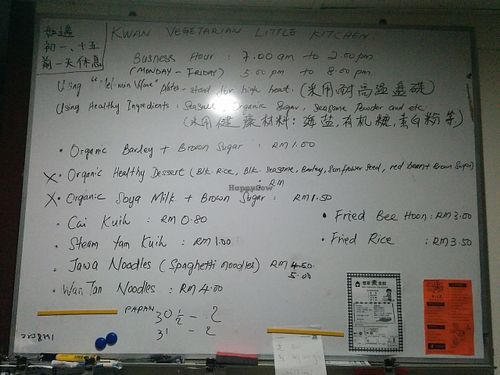 KWAN VEGETARIAN LITTLE KITCHEN
如逢
初一、十五
前一天休息
Business Hour : 7.00 am to 2.00 pm
(MONDAY - FRIDAY) 5.00 pm to 8.00 pm
Using "Melmin Ware" Plates - stand for high heat. (采用耐高温器
Using Healthy Ingredients : Seasalt, Organic Sugar, Seasame Powder and etc
(采用健康材料：海盐，有机糖，素G粉等)
• Organic Barley + Brown Sugar : RM1.00
X • Organic Healthy Dessert (Blk. Rice, Blk. Seasame, Barley, Sunflower Seed, red bean + Brown Sugar)
: RM
X • Organic Soya Milk + Brown Sugar : RM1.50
• Cai Kuih : RM 0.80
• Steam Yam Kuih : RM 1.00
• Jawa Noodles (Spaghetti noodles) RM 4.50
5.00
• Wan Tan Noodles : RM 4.00
• Fried Bee Hoon : RM 3.00
• Fried Rice : RM 3.50
PAPAN
30 1/2 - 2
31 - 2
HappyCow